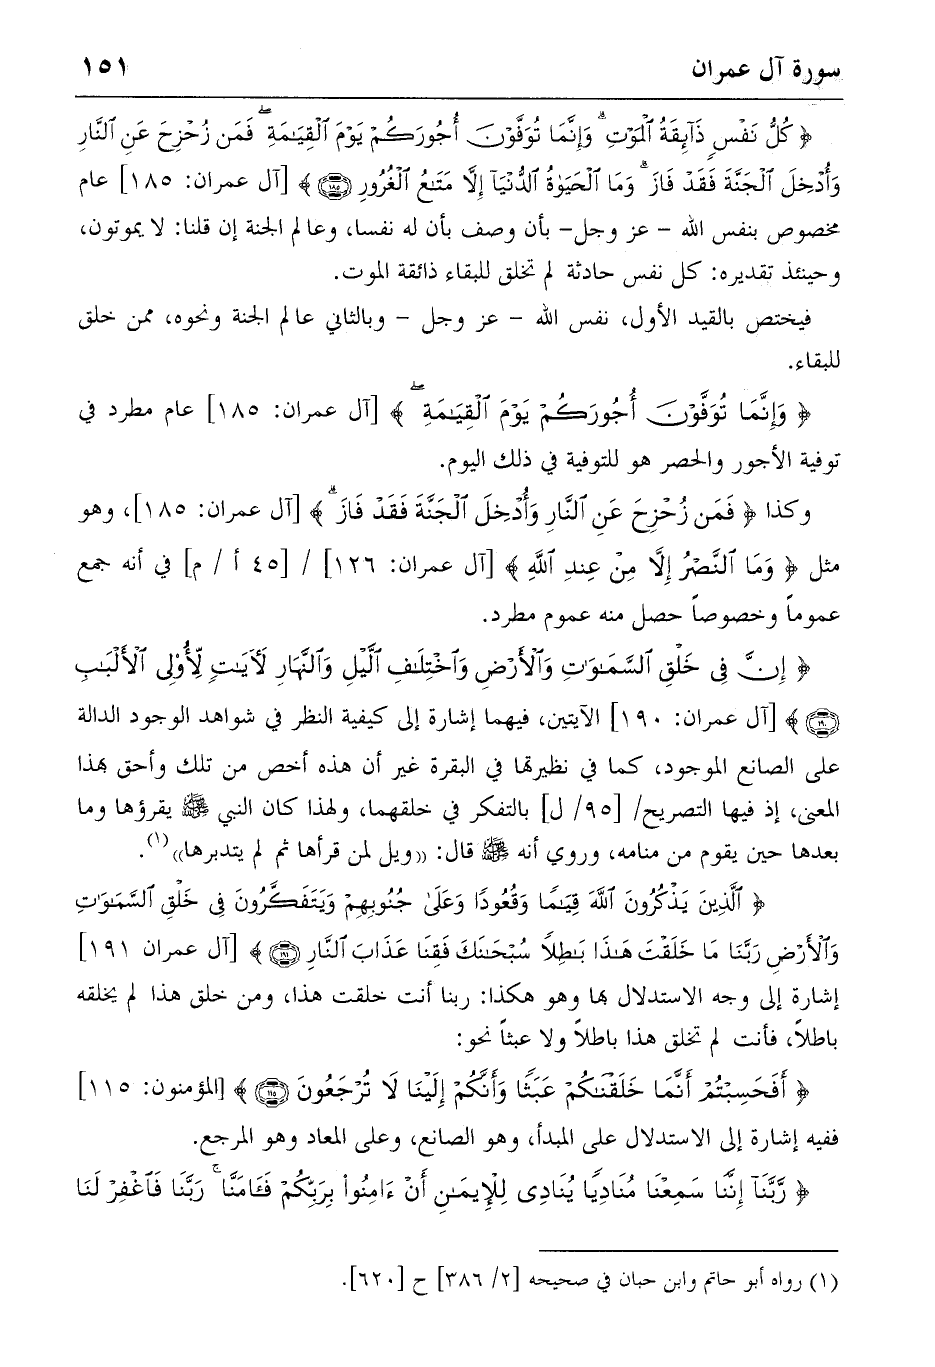 سورة آل عمران ١٥١
﴿ كُلُّ نَفْسٍ ذَآئِقَةُ ٱلْمَوْتِ ۗ وَإِنَّمَا تُوَفَّوْنَ أُجُورَكُمْ يَوْمَ ٱلْقِيَـٰمَةِ ۖ فَمَن زُحْزِحَ عَنِ ٱلنَّارِ
وَأُدْخِلَ ٱلْجَنَّةَ فَقَدْ فَازَ ۗ وَمَا ٱلْحَيَوٰةُ ٱلدُّنْيَآ إِلَّا مَتَـٰعُ ٱلْغُرُورِ ﴿١٨٥﴾ ﴾ [آل عمران: ١٨٥] عام
مخصوص بنفس الله - عز وجل- بأن وصف بأن له نفسا، وعالم الجنة إن قلنا: لا يموتون،
وحينئذ تقديره: كل نفس حادثة لم تخلق للبقاء ذائقة الموت.
فيختص بالقيد الأول، نفس الله - عز وجل - وبالثاني عالم الجنة ونحوه، ممن خلق
للبقاء.
﴿ وَإِنَّمَا تُوَفَّوْنَ أُجُورَكُمْ يَوْمَ ٱلْقِيَـٰمَةِ ۖ ﴾ [آل عمران: ١٨٥] عام مطرد في
توفية الأجور والحصر هو للتوفية في ذلك اليوم.
وكذا ﴿ فَمَن زُحْزِحَ عَنِ ٱلنَّارِ وَأُدْخِلَ ٱلْجَنَّةَ فَقَدْ فَازَ ۗ ﴾ [آل عمران: ١٨٥]، وهو
مثل ﴿ وَمَا ٱلنَّصْرُ إِلَّا مِنْ عِندِ ٱللَّهِ ﴾ [آل عمران: ١٢٦] / [٤٥ أ / م] في أنه جمع
عموماً وخصوصاً حصل منه عموم مطرد.
﴿ إِنَّ فِى خَلْقِ ٱلسَّمَـٰوَٰتِ وَٱلْأَرْضِ وَٱخْتِلَـٰفِ ٱلَّيْلِ وَٱلنَّهَارِ لَـَٔايَـٰتٍ لِّأُو۟لِى ٱلْأَلْبَـٰبِ
﴿١٩٠﴾ ﴾ [آل عمران: ١٩٠] الآيتين، فيهما إشارة إلى كيفية النظر في شواهد الوجود الدالة
على الصانع الموجود، كما في نظيرتها في البقرة غير أن هذه أخص من تلك وأحق بهذا
المعنى، إذ فيها التصريح/ [٩٥/ ل] بالتفكر في خلقهما، ولهذا كان النبي ﷺ يقرؤها وما
بعدها حين يقوم من منامه، وروي أنه ﷺ قال: ((ويل لمن قرأها ثم لم يتدبرها))(١).
﴿ ٱلَّذِينَ يَذْكُرُونَ ٱللَّهَ قِيَـٰمًا وَقُعُودًا وَعَلَىٰ جُنُوبِهِمْ وَيَتَفَكَّرُونَ فِى خَلْقِ ٱلسَّمَـٰوَٰتِ
وَٱلْأَرْضِ رَبَّنَا مَا خَلَقْتَ هَـٰذَا بَـٰطِلًا سُبْحَـٰنَكَ فَقِنَا عَذَابَ ٱلنَّارِ ﴿١٩١﴾ ﴾ [آل عمران ١٩١]
إشارة إلى وجه الاستدلال بها وهو هكذا: ربنا أنت خلقت هذا، ومن خلق هذا لم يخلقه
باطلاً، فأنت لم تخلق هذا باطلاً ولا عبثاً نحو:
﴿ أَفَحَسِبْتُمْ أَنَّمَا خَلَقْنَـٰكُمْ عَبَثًا وَأَنَّكُمْ إِلَيْنَا لَا تُرْجَعُونَ ﴿١١٥﴾ ﴾ [المؤمنون: ١١٥]
ففيه إشارة إلى الاستدلال على المبدأ، وهو الصانع، وعلى المعاد وهو المرجع.
﴿ رَّبَّنَآ إِنَّنَا سَمِعْنَا مُنَادِيًا يُنَادِى لِلْإِيمَـٰنِ أَنْ ءَامِنُوا۟ بِرَبِّكُمْ فَـَٔامَنَّا ۚ رَبَّنَا فَٱغْفِرْ لَنَا
(١) رواه أبو حاتم وابن حبان في صحيحه [٢/ ٣٨٦] ح [٦٢٠].